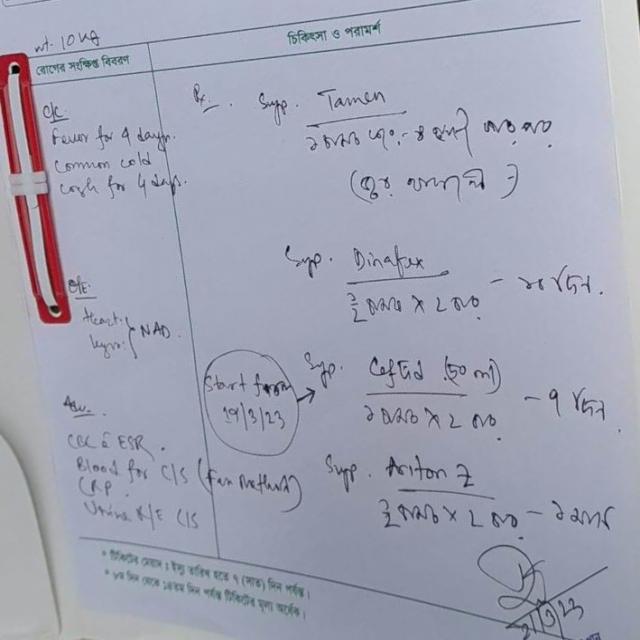 wt. 10 kg
রোগের সংক্ষিপ্ত বিবরণ
চিকিৎসা ও পরামর্শ
C/C:
Fever for 4 days.
Common cold
Cough for 4 days.
O/E:
Heart
lungs
NAD.
Adv.
CBC & ESR.
Blood for C/S (Fan Method)
CRP.
Urine R/E C/S
Rx.
Syp. Tamen
১ চামচ
Syp. Dinafex
½ চামচ × ২ বার - ১০ দিন.
Start from
19/3/23
Syp.
১ চামচ × ২ বার - ৭ দিন.
Syp. Ariton Z
½ চামচ × ২ বার - ১ মাস
* টিকিটের মেয়াদ ১ ইস্যু তারিখ হতে ৭ (সাত) দিন পর্যন্ত।
* ৮ম দিন থেকে ১৪তম দিন পর্যন্ত টিকিটের মূল্য অর্ধেক।